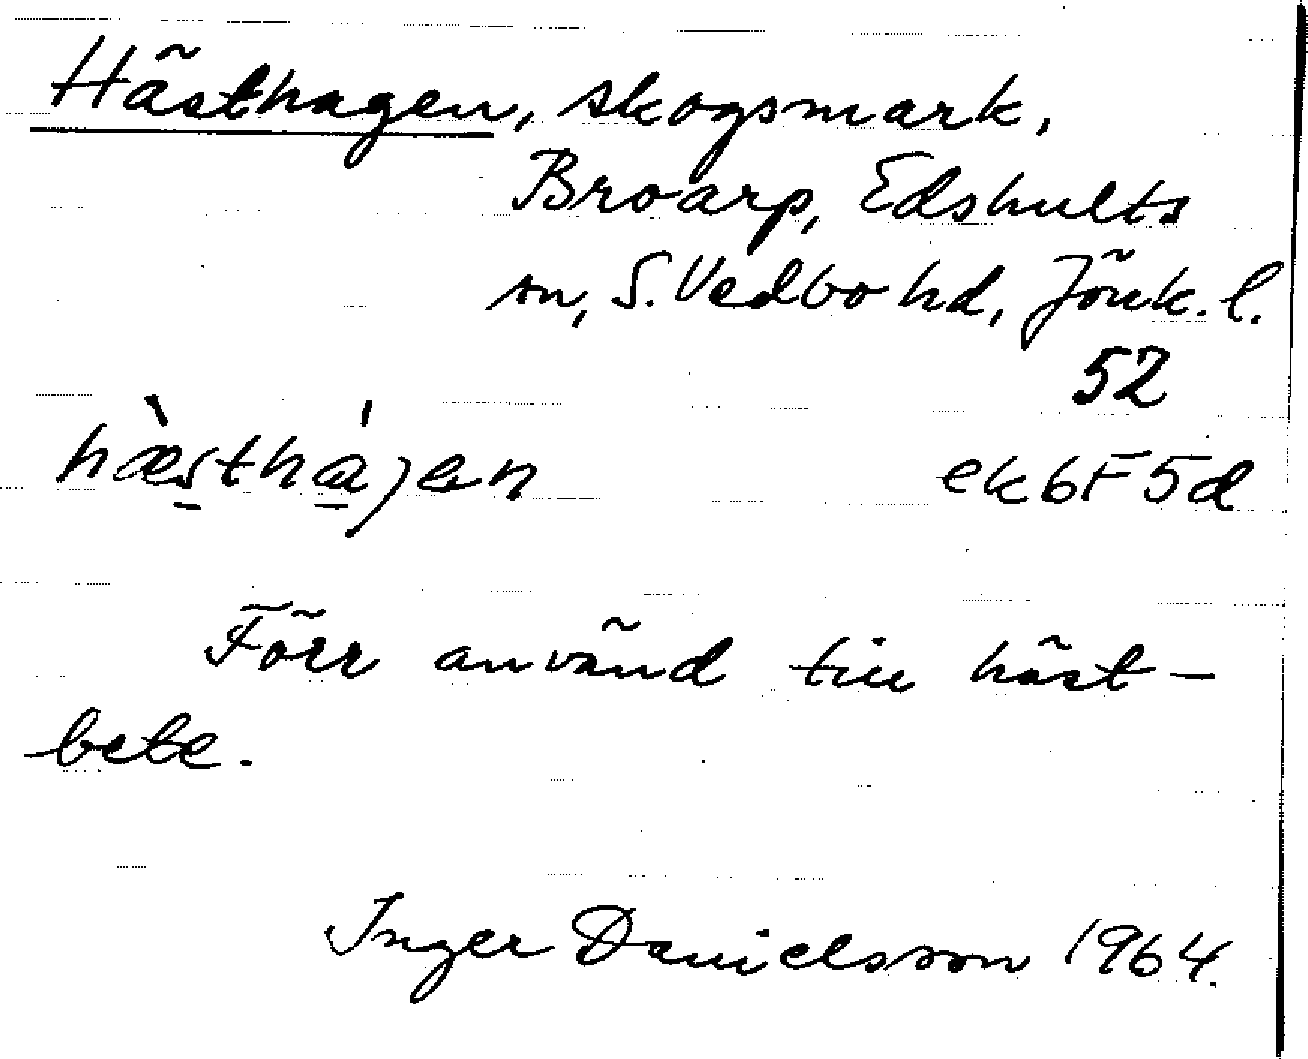 Hästhagen, skogsmark,
Broarp, Edshults
sn, S. Vedbo hd, Jönk. l.
52
hæ̀sthájen ek6F5d
Förr använd till häst-
bete.
Inger Danielsson 1964.